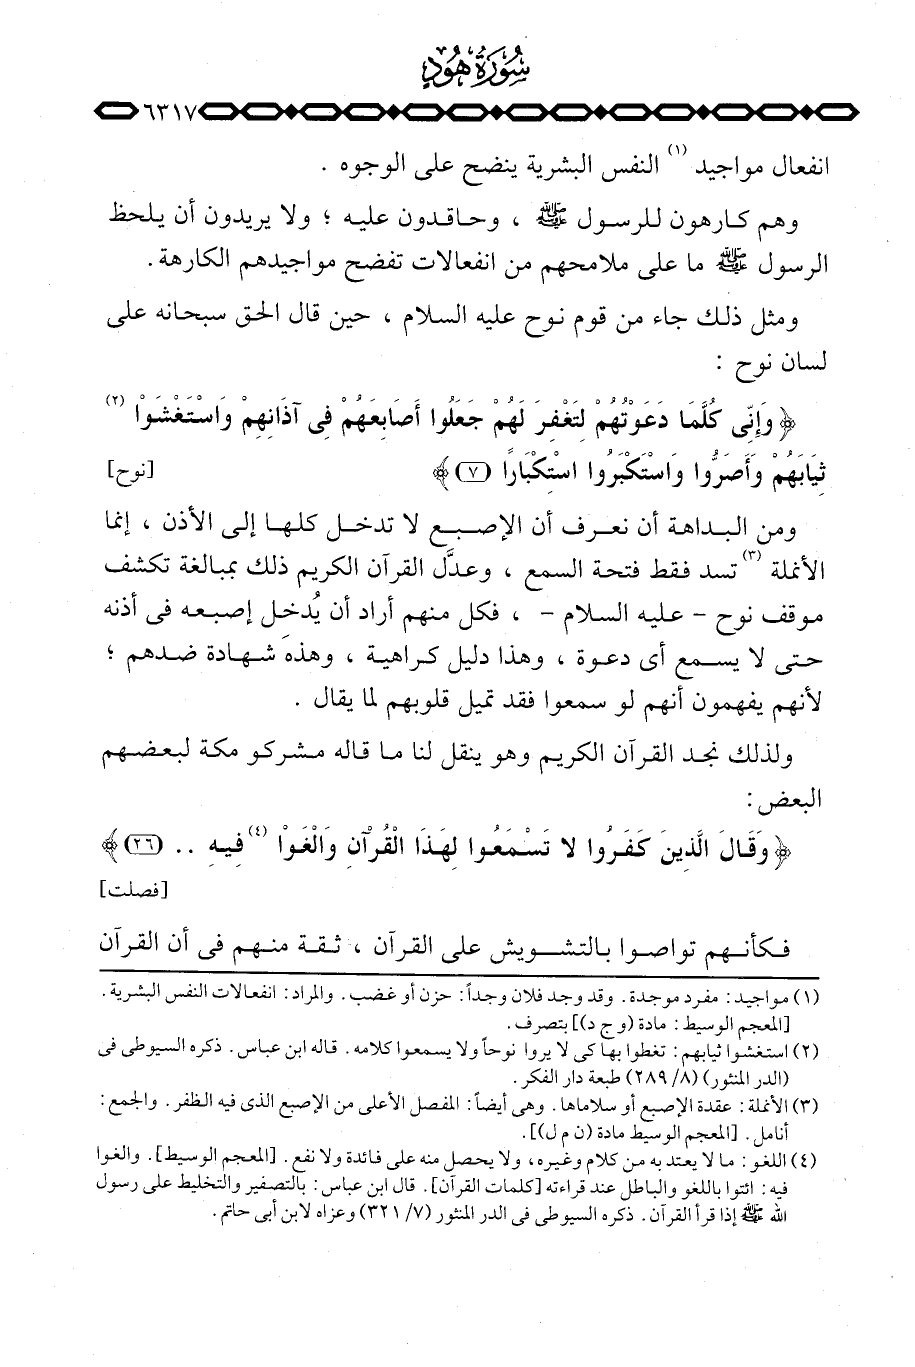 سُورَةُ هُودٍ
٦٣١٧
انفعال مواجيد (١) النفس البشرية ينضح على الوجوه .
وهم كارهون للرسول ﷺ ، وحاقدون عليه ؛ ولا يريدون أن يلحظ
الرسول ﷺ ما على ملامحهم من انفعالات تفضح مواجيدهم الكارهة .
ومثل ذلك جاء من قوم نوح عليه السلام ، حين قال الحق سبحانه على
لسان نوح :
﴿ وَإِنِّى كُلَّمَا دَعَوْتُهُمْ لِتَغْفِرَ لَهُمْ جَعَلُوا أَصَابِعَهُمْ فِى آذَانِهِمْ وَاسْتَغْشَوْا (٢)
ثِيَابَهُمْ وَأَصَرُّوا وَاسْتَكْبَرُوا اسْتِكْبَارًا (٧) ﴾ [نوح]
ومن البداهة أن نعرف أن الإصبع لا تدخل كلها إلى الأذن ، إنما
الأنملة (٣) تسد فقط فتحة السمع ، وعدَّل القرآن الكريم ذلك بمبالغة تكشف
موقف نوح - عليه السلام - ، فكل منهم أراد أن يُدخل إصبعه فى أذنه
حتى لا يسمع أى دعوة ، وهذا دليل كراهية ، وهذه شهادة ضدهم ؛
لأنهم يفهمون أنهم لو سمعوا فقد تميل قلوبهم لما يقال .
ولذلك نجد القرآن الكريم وهو ينقل لنا ما قاله مشركو مكة لبعضهم
البعض :
﴿ وَقَالَ الَّذِينَ كَفَرُوا لا تَسْمَعُوا لِهَذَا الْقُرْآنِ وَالْغَوْا (٤) فِيهِ .. (٢٦) ﴾
[فصلت]
فكأنهم تواصوا بالتشويش على القرآن ، ثقة منهم فى أن القرآن
(١) مواجيد : مفرد موجدة . وقد وجد فلان وجداً : حزن أو غضب . والمراد : انفعالات النفس البشرية .
[المعجم الوسيط : مادة (و ج د)] بتصرف .
(٢) استغشوا ثيابهم : تغطوا بها كى لا يروا نوحاً ولا يسمعوا كلامه . قاله ابن عباس . ذكره السيوطى فى
(الدر المنثور) (٨/ ٢٨٩) طبعة دار الفكر .
(٣) الأنملة : عقدة الإصبع أو سلاماها . وهى أيضاً : المفصل الأعلى من الإصبع الذى فيه الظفر . والجمع :
أنامل . [المعجم الوسيط مادة (ن م ل)] .
(٤) اللغو : ما لا يعتد به من كلام وغيره ، ولا يحصل منه على فائدة ولا نفع . [المعجم الوسيط] . والغوا
فيه : ائتوا باللغو والباطل عند قراءته [كلمات القرآن] . قال ابن عباس : بالتصفير والتخليط على رسول
الله ﷺ إذا قرأ القرآن . ذكره السيوطى فى الدر المنثور (٧/ ٣٢١) وعزاه لابن أبى حاتم .